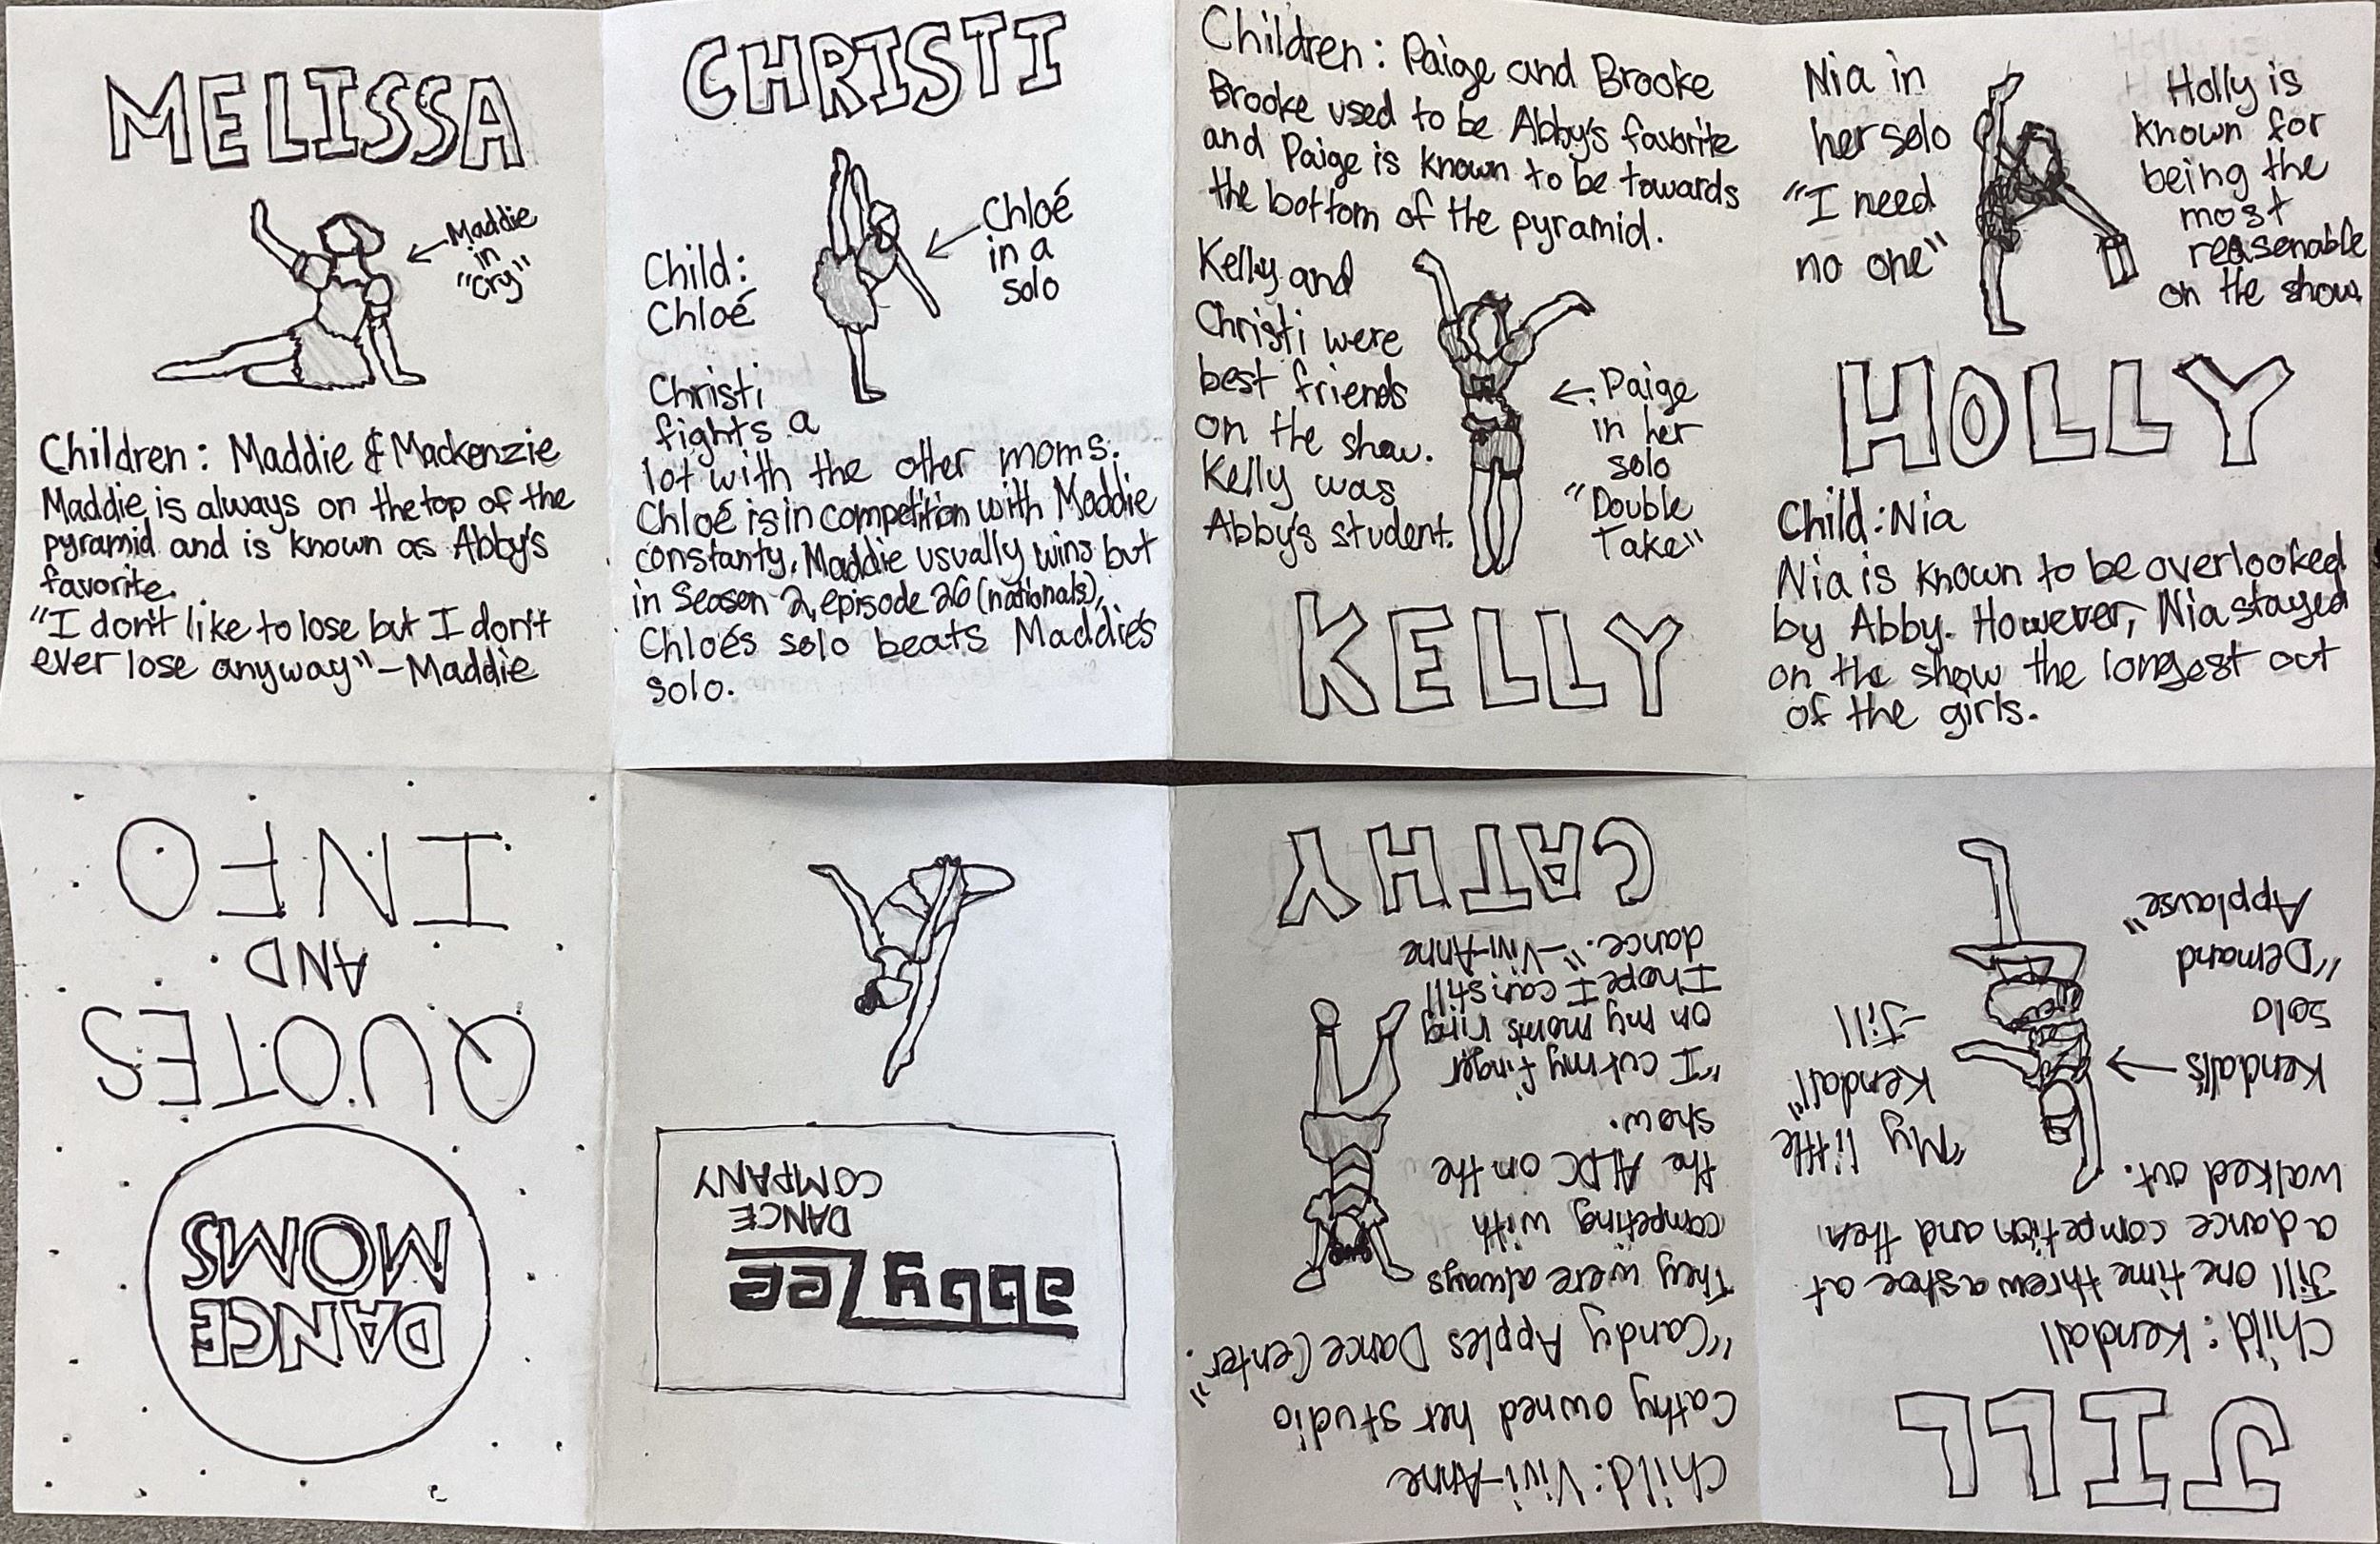 MELISSA
Maddie
in
"Cry"
Children: Maddie & Mackenzie
Maddie is always on the top of the
pyramid and is known as Abby's
favorite.
"I don't like to lose but I don't
ever lose anyway"-Maddie
CHRISTI
Chloé
in a
solo
Child:
Chloé
Christi
fights a
lot with the other moms.
Chloé is in competition with Maddie
constanty. Maddie usually wins but
in Season 2, episode 26 (nationals),
Chloé's solo beats Maddie's
solo.
Children: Paige and Brooke
Brooke used to be Abby's favorite
and Paige is known to be towards
the bottom of the pyramid.
Kelly and
Christi were
best friends
on the show.
Kelly was
Abby's student.
Paige
in her
solo
"Double
Take"
KELLY
Nia in
her solo
"I need
no one"
Holly is
known for
being the
most
reasenable
on the show.
HOLLY
Child: Nia
Nia is known to be overlooked
by Abby. However, Nia stayed
on the show the longest out
of the girls.
JILL
Child: Kendall
Jill one time threw a shoe at
a dance competion and then
walked out.
"My little
Kendall"
-Jill
Kendall's
solo
"Demand
Applause"
Child: Vivi-Anne
Cathy owned her studio
"Candy Apples Dance Center."
They were always
competing with
the ALDC on the
show.
"I cut my finger
on my moms ring
I hope I can still
dance."-Vivi-Anne
CATHY
abby lee
DANCE
COMPANY
DANCE
MOMS
QUOTES
AND
INFO